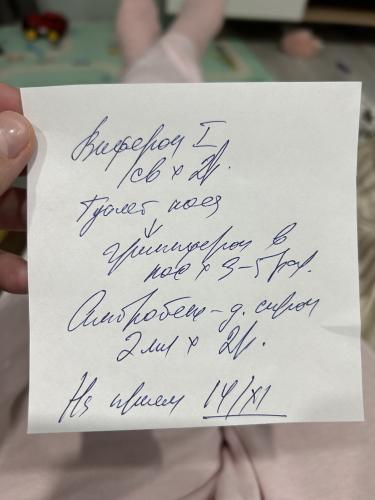 Виферон I
1св x 2р.
Туалет носа
↓
гриппферон в
нос x 3-5 раз.
Амбробене - д. сироп
2 мл x 2р.
На прием 14/XI